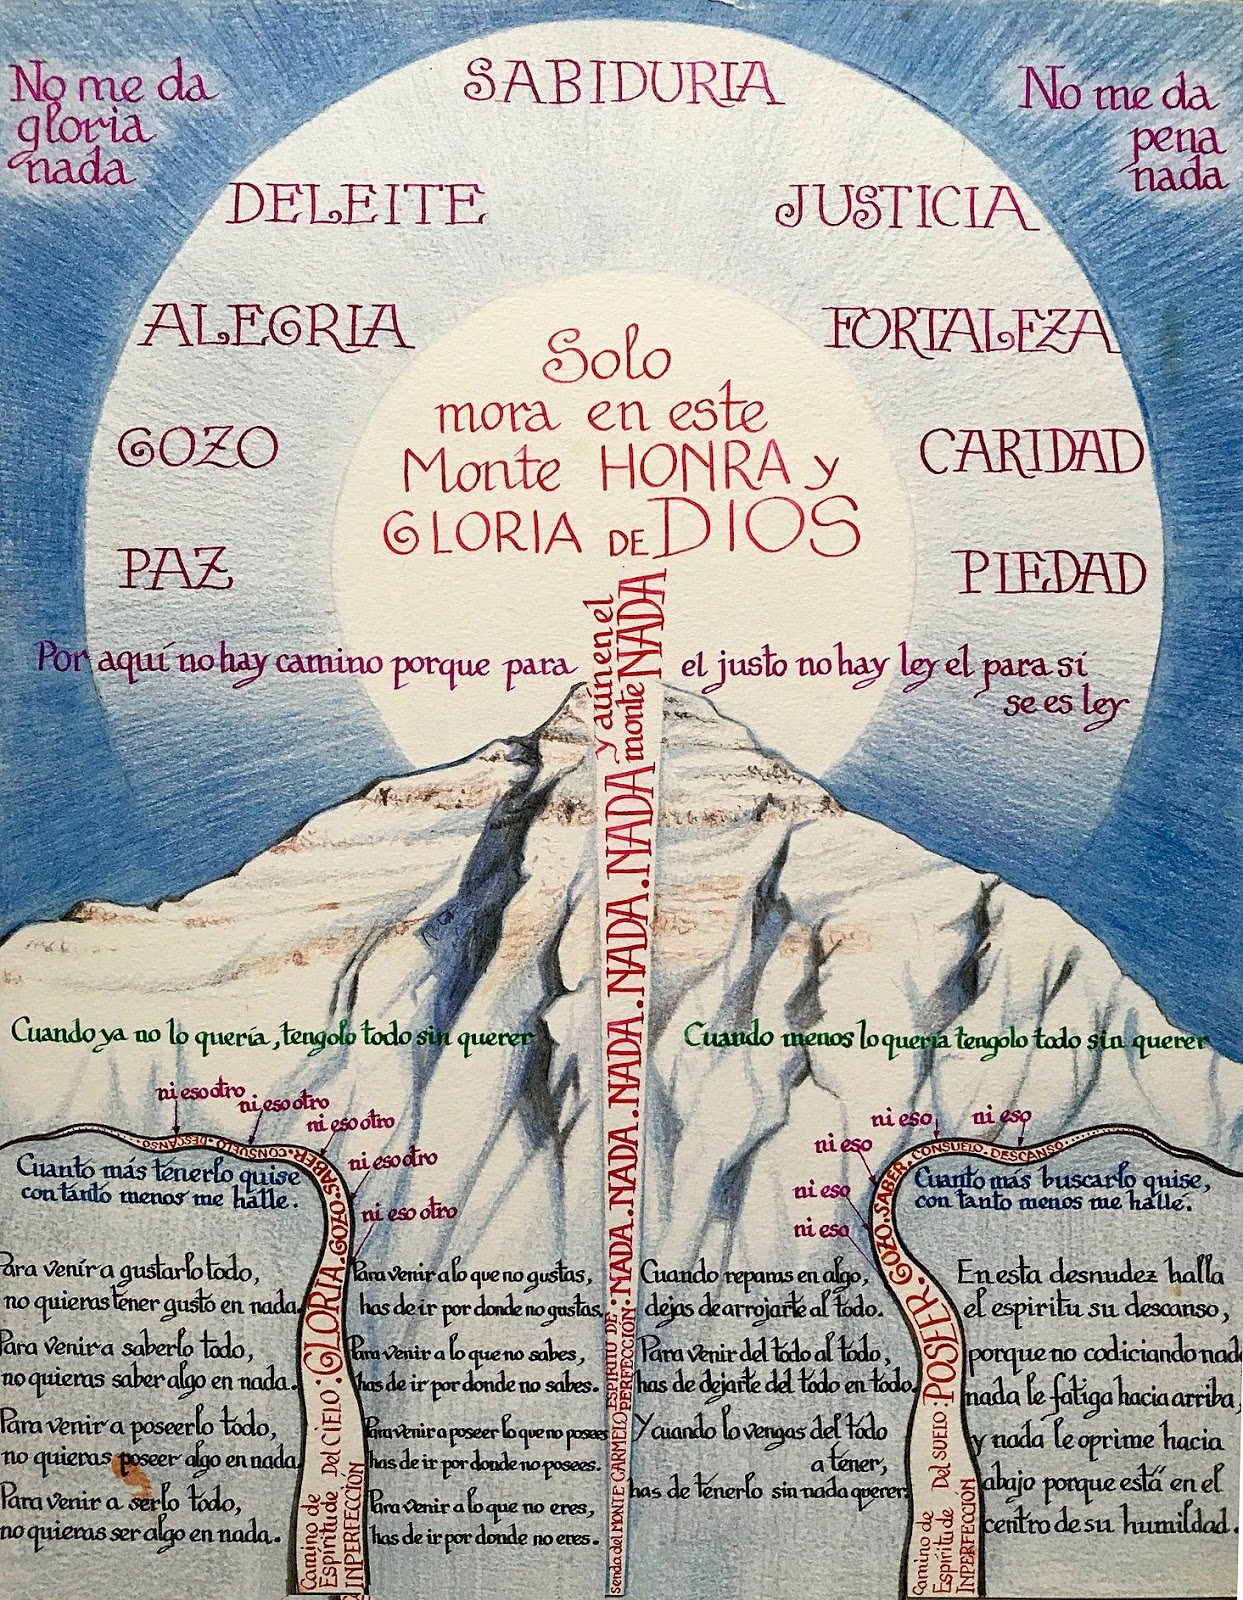 SABIDURIA
No me da
gloria
nada
No me da
pena
nada
DELEITE
JUSTICIA
ALEGRIA
FORTALEZA
GOZO
CARIDAD
PAZ
PIEDAD
Solo
mora en este
Monte HONRA y
GLORIA DE DIOS
Por aquí no hay camino porque para
el justo no hay ley el para sí
se es ley
y aún en el
monte NADA
Senda del MONTE CARMELO ESPIRITO DE PERFECCIÓN: NADA. NADA. NADA. NADA. NADA. NADA
Cuando ya no lo quería, tengolo todo sin querer
Cuando menos lo quería tengolo todo sin querer
ni eso otro
ni eso otro
ni eso otro
ni eso otro
ni eso otro
ni eso
ni eso
ni eso
ni eso
ni eso
Camino de Espíritu de INPERFECCIÓN Del CIELO: GLORIA. GOZO. SABER. CONSUELO. DESCANSO
Camino de Espíritu de INPERFECCIÓN Del SUELO: POSEER. GOZO. SABER. CONSUELO. DESCANSO
Cuanto más tenerlo quise
con tanto menos me hallé.
Cuanto más buscarlo quise,
con tanto menos me hallé.
Para venir a gustarlo todo,
no quieras tener gusto en nada.
Para venir a saberlo todo,
no quieras saber algo en nada.
Para venir a poseerlo todo,
no quieras poseer algo en nada.
Para venir a serlo todo,
no quieras ser algo en nada.
Para venir a lo que no gustas,
has de ir por donde no gustas.
Para venir a lo que no sabes,
has de ir por donde no sabes.
Para venir a poseer lo que no posees
has de ir por donde no posees.
Para venir a lo que no eres,
has de ir por donde no eres.
Cuando reparas en algo,
dejas de arrojarte al todo.
Para venir del todo al todo,
has de dejarte del todo en todo.
Y cuando lo vengas del todo
a tener,
has de tenerlo sin nada querer.
En esta desnudez halla
el espíritu su descanso,
porque no codiciando nada
nada le fatiga hacia arriba,
y nada le oprime hacia
abajo porque está en el
centro de su humildad.